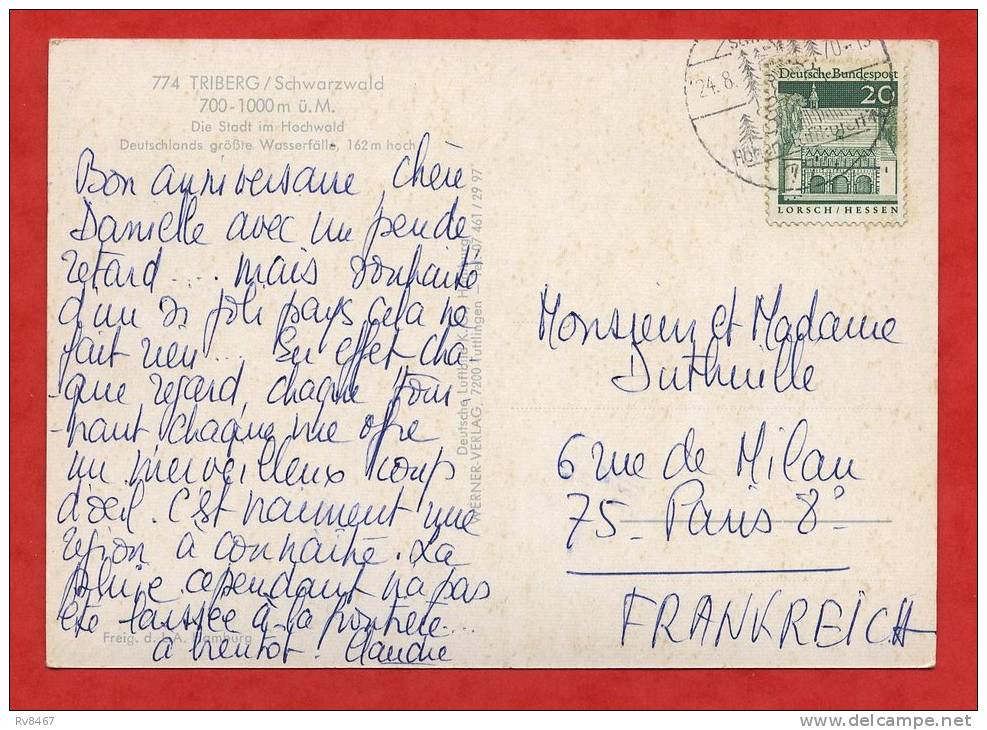 774 TRIBERG/Schwarzwald
700-1000m ü.M.
Die Stadt im Hochwald
Deutschlands größte Wasserfälle, 162m hoch
Bon anniversaire chère
Danielle avec un peu de
retard .... mais souhaité
d'un si joli pays cela ne
fait rien ... En effet cha
-que regard, chaque tour
-nant chaque vue offre
un merveilleux coup
d'oeil. C'est vraiment une
région à connaître. La
pluie cependant n'a pas
été laissée à la frontière...
à bientôt! Claudie
Freig. d. L.A. Hamburg
Deutsche Luftbild K.G., Hamburg
WERNER-VERLAG, 7200 Tuttlingen – Tel. 07 461 / 29 97
24.8. 70-13
Deutsche Bundespost
20
LORSCH/HESSEN
Monsieur et Madame
Duthuille
6 rue de Milan
75 - Paris 8°
FRANKREICH
Rv8467
http://www.delcampe.net